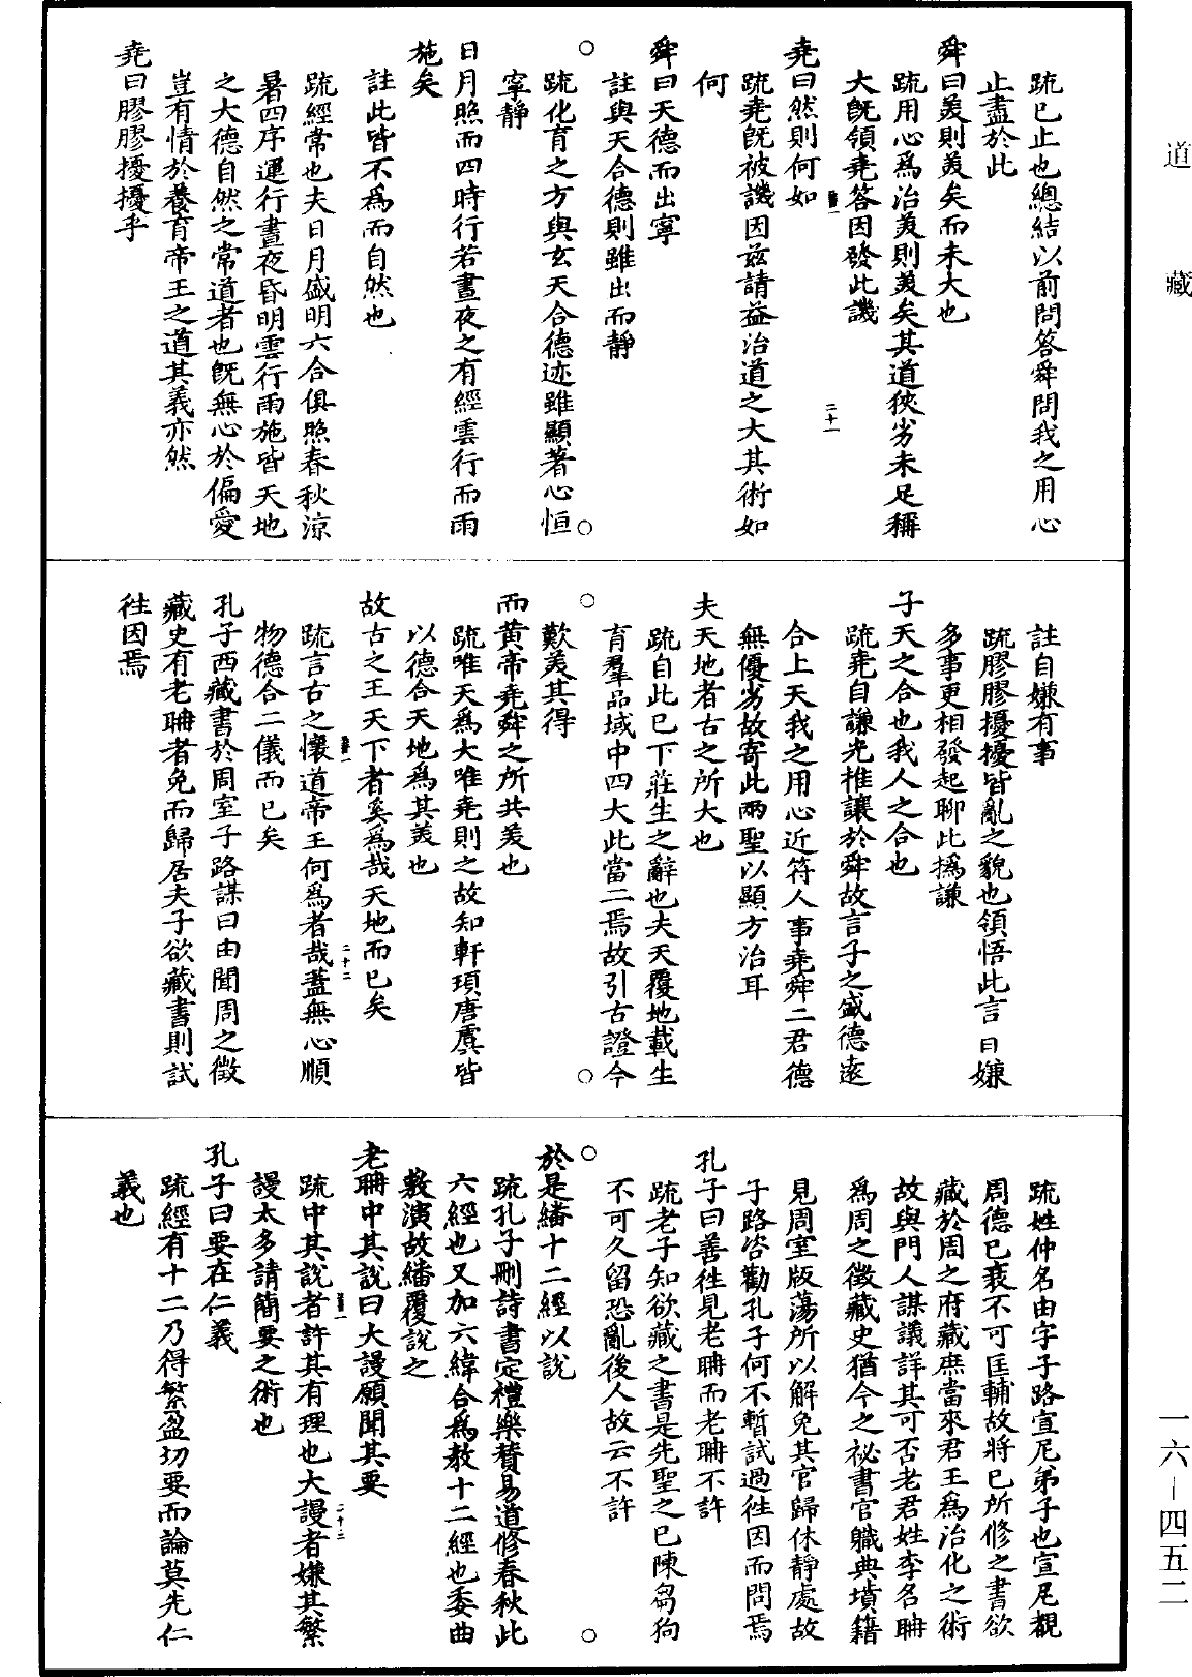 道藏
疏已止也總結以前問答舜問我之用心
止盡於此
舜曰美則美矣而未大也
疏用心爲治美則美矣其道狹劣未足稱
大既領堯答因發此譏
堯曰然則何如
二十一
疏堯既被譏因兹請益治道之大其術如
何
舜曰天德而出寧
註與天合德則雖出而靜
疏化育之方與玄天合德迹雖顯著心恒
寧靜
日月照而四時行若晝夜之有經雲行而雨
施矣
註此皆不爲而自然也
疏經常也夫日月盛明六合俱照春秋涼
暑四序運行晝夜昏明雲行雨施皆天地
之大德自然之常道者也既無心於偏愛
豈有情於養育帝王之道其義亦然
堯曰膠膠擾擾乎
註自嫌有事
疏膠膠擾擾皆亂之貌也領悟此言曰嫌
多事更相發起聊此撝謙
子天之合也我人之合也
疏堯自謙光推讓於舜故言子之盛德遠
合上天我之用心近符人事堯舜二君德
無優劣故寄此兩聖以顯方治耳
夫天地者古之所大也
疏自此已下莊生之辭也夫天覆地載生
育羣品域中四大此當二焉故引古證今
歎美其得
而黄帝堯舜之所共美也
疏唯天爲大唯堯則之故知軒頊唐虞皆
以德合天地爲其美也
故古之王天下者奚爲哉天地而已矣
二十二
疏言古之懷道帝王何爲者哉蓋無心順
物德合二儀而已矣
孔子西藏書於周室子路謀曰由聞周之徵
藏史有老聃者免而歸居夫子欲藏書則試
往因焉
疏姓仲名由字子路宣尼弟子也宣尼覩
周德已衰不可匡輔故將已所修之書欲
藏於周之府藏庶當來君王爲治化之術
故與門人謀議詳其可否老君姓李名聃
爲周之徵藏史猶今之祕書官職典墳籍
見周室版蕩所以解免其官歸休靜處故
子路咨勸孔子何不暫試過往因而問焉
孔子曰善往見老聃而老聃不許
疏老子知欲藏之書是先聖之已陳芻狗
不可久留恐亂後人故云不許
於是繙十二經以說
疏孔子刪詩書定禮樂賛易道修春秋此
六經也又加六緯合爲教十二經也委曲
敷演故繙覆說之
老聃中其說曰大謾願聞其要
二十三
疏中其說者許其有理也大謾者嫌其繁
謾太多請簡要之術也
孔子曰要在仁義
疏經有十二乃得繁盈切要而論莫先仁
義也
一六-四五二